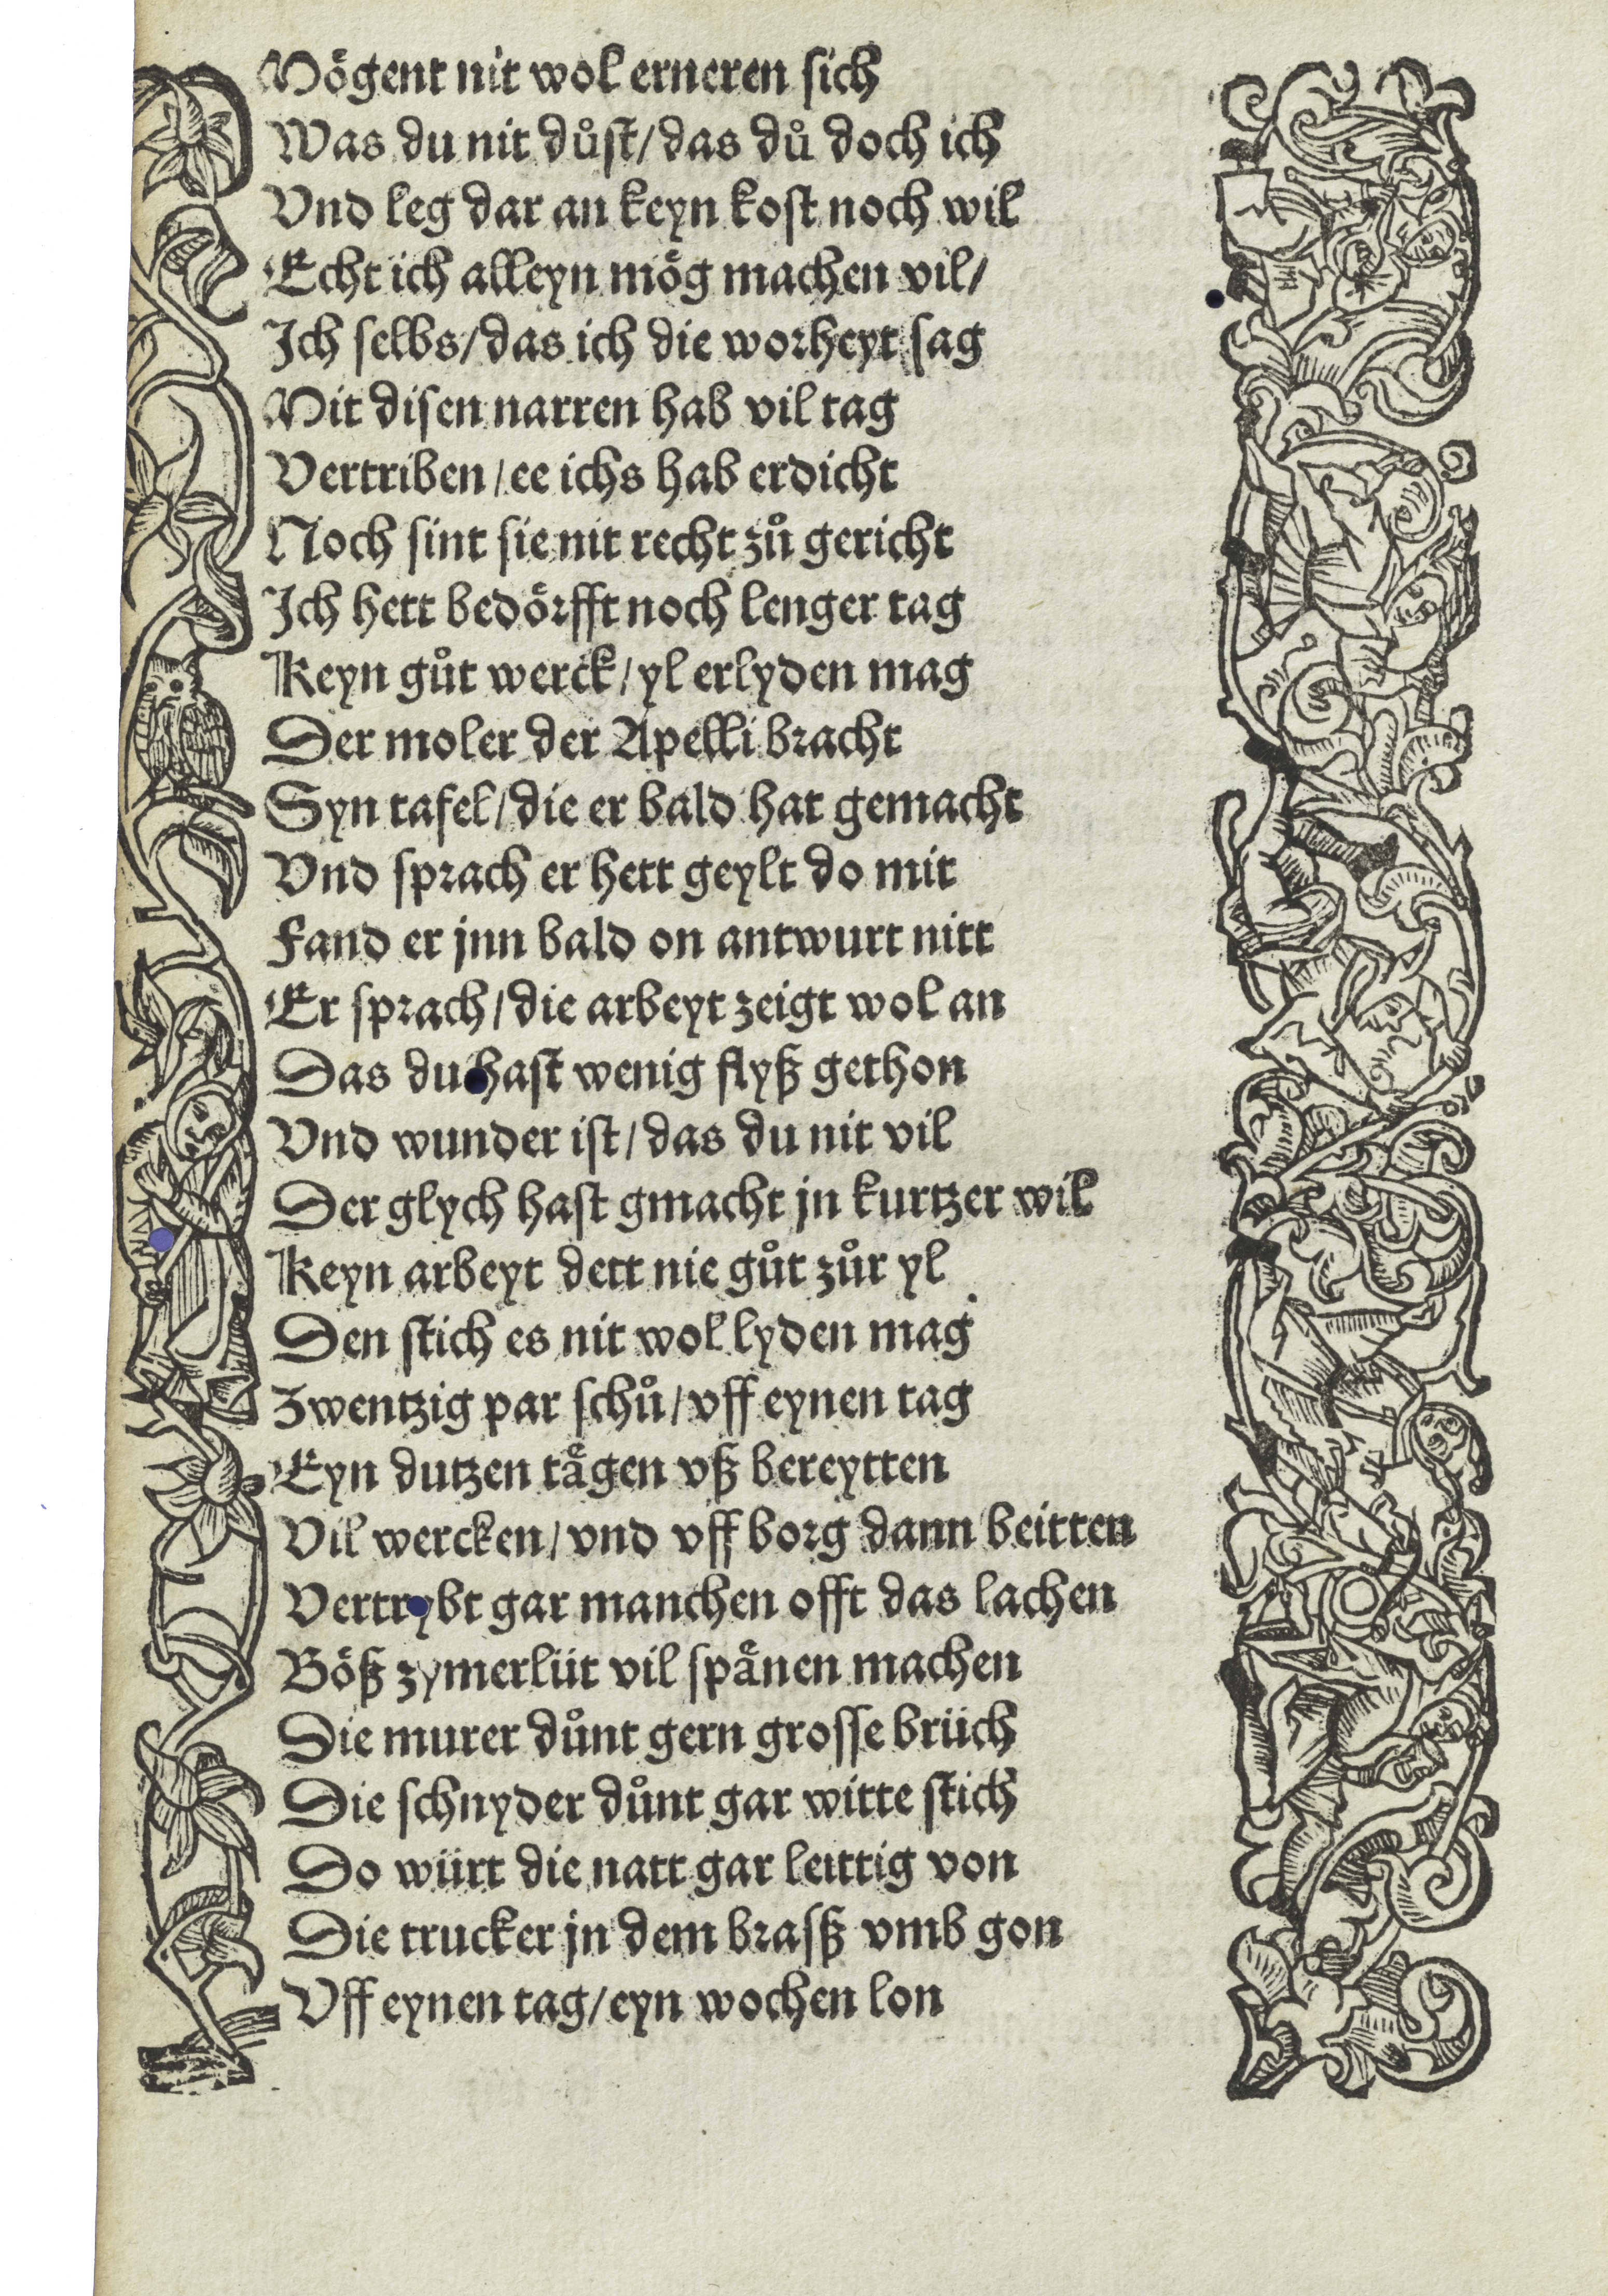 Mögent nit wol erneren sich
Was du nit důst/das dů doch ich
Vnd leg dar an keyn kost noch wil
Echt ich alleyn mög machen vil/
Ich selbs/das ich die worheyt sag
Mit disen narren hab vil tag
Vertriben/ee ichs hab erdicht
Noch sint sie nit recht zů gericht
Ich hett bedörfft noch lenger tag
Keyn gůt werck/yl erlyden mag
Der moler der Apelli bracht
Syn tafel/die er bald hat gemacht
Vnd sprach er hett geylt do mit
Fand er jnn bald on antwurt nitt
Er sprach/die arbeyt zeigt wol an
Das du hast wenig flyß gethon
Vnd wunder ist/das du nit vil
Der glych hast gmacht jn kurtzer wil
Keyn arbeyt dett nie gůt zůr yl
Den stich es nit wol lyden mag
Zwentzig par schů/vff eynen tag
Eyn dutzen tägen vß bereytten
Vil wercken/vnd vff borg dann beitten
Vertrybt gar manchen offt das lachen
Böß zymerlüt vil spänen machen
Die murer důnt gern grosse brüch
Die schnyder důnt gar witte stich
Do würt die natt gar leittig von
Die trucker jn dem braß vmb gon
Vff eynen tag/eyn wochen lon